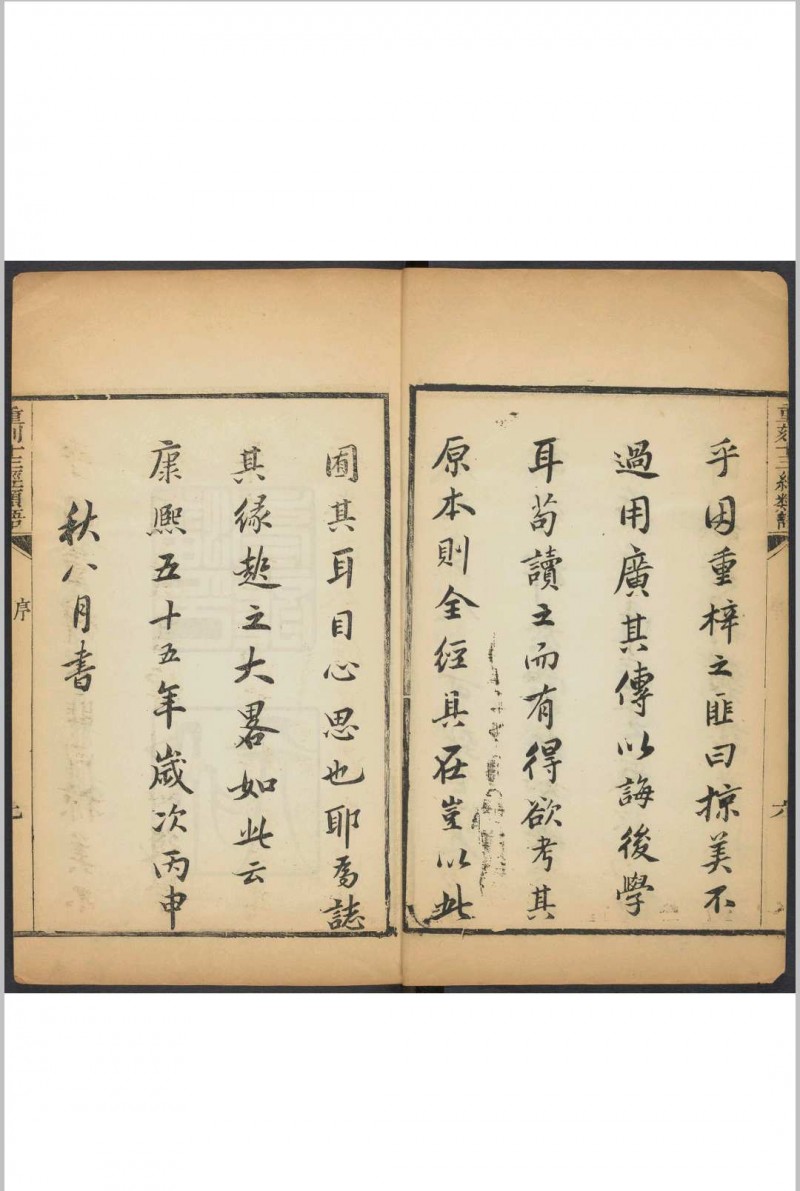 重刻十三經類語
六
乎因重梓之匪曰掠美不
過用廣其傳以誨後學
耳苟讀之而有得欲考其
原本則全經具在豈以此
囿其耳目心思也耶爰誌
其緣起之大畧如此云
康熙五十五年歲次丙申
秋八月書
重刻十三經類語
序
七